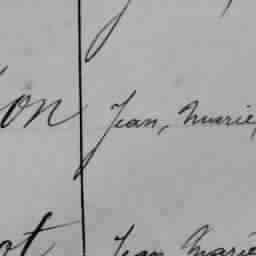 on Jean, Marie,
ot Jean Marie